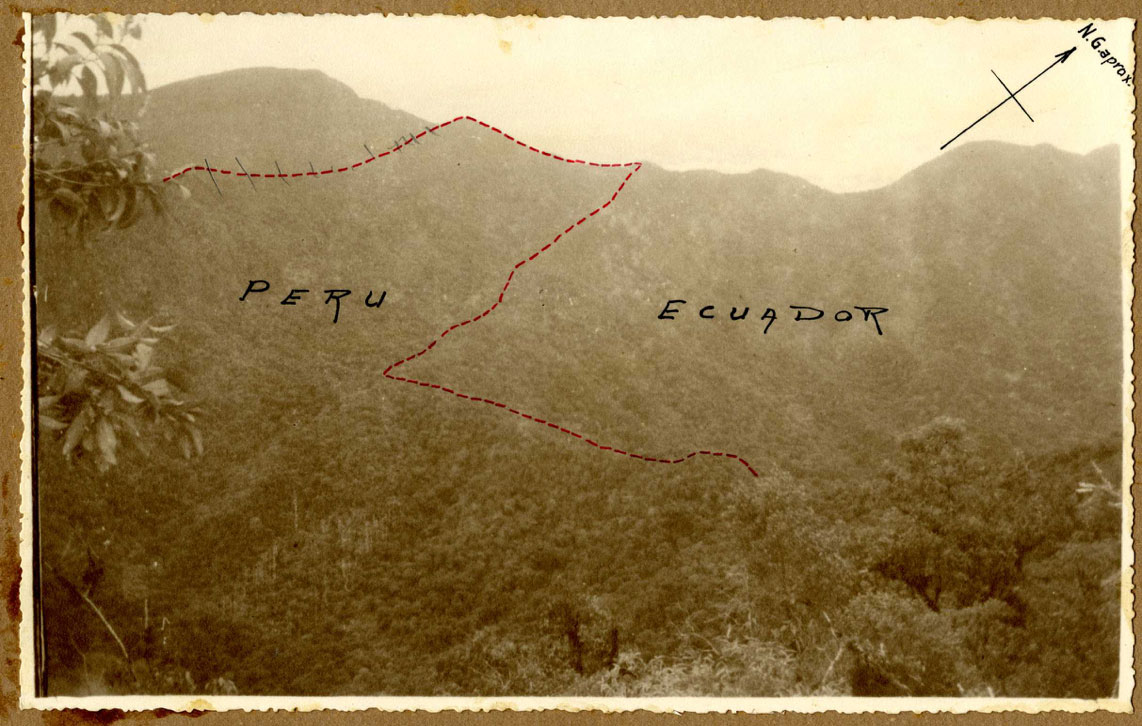 N.G. aprox.
PERU
ECUADOR